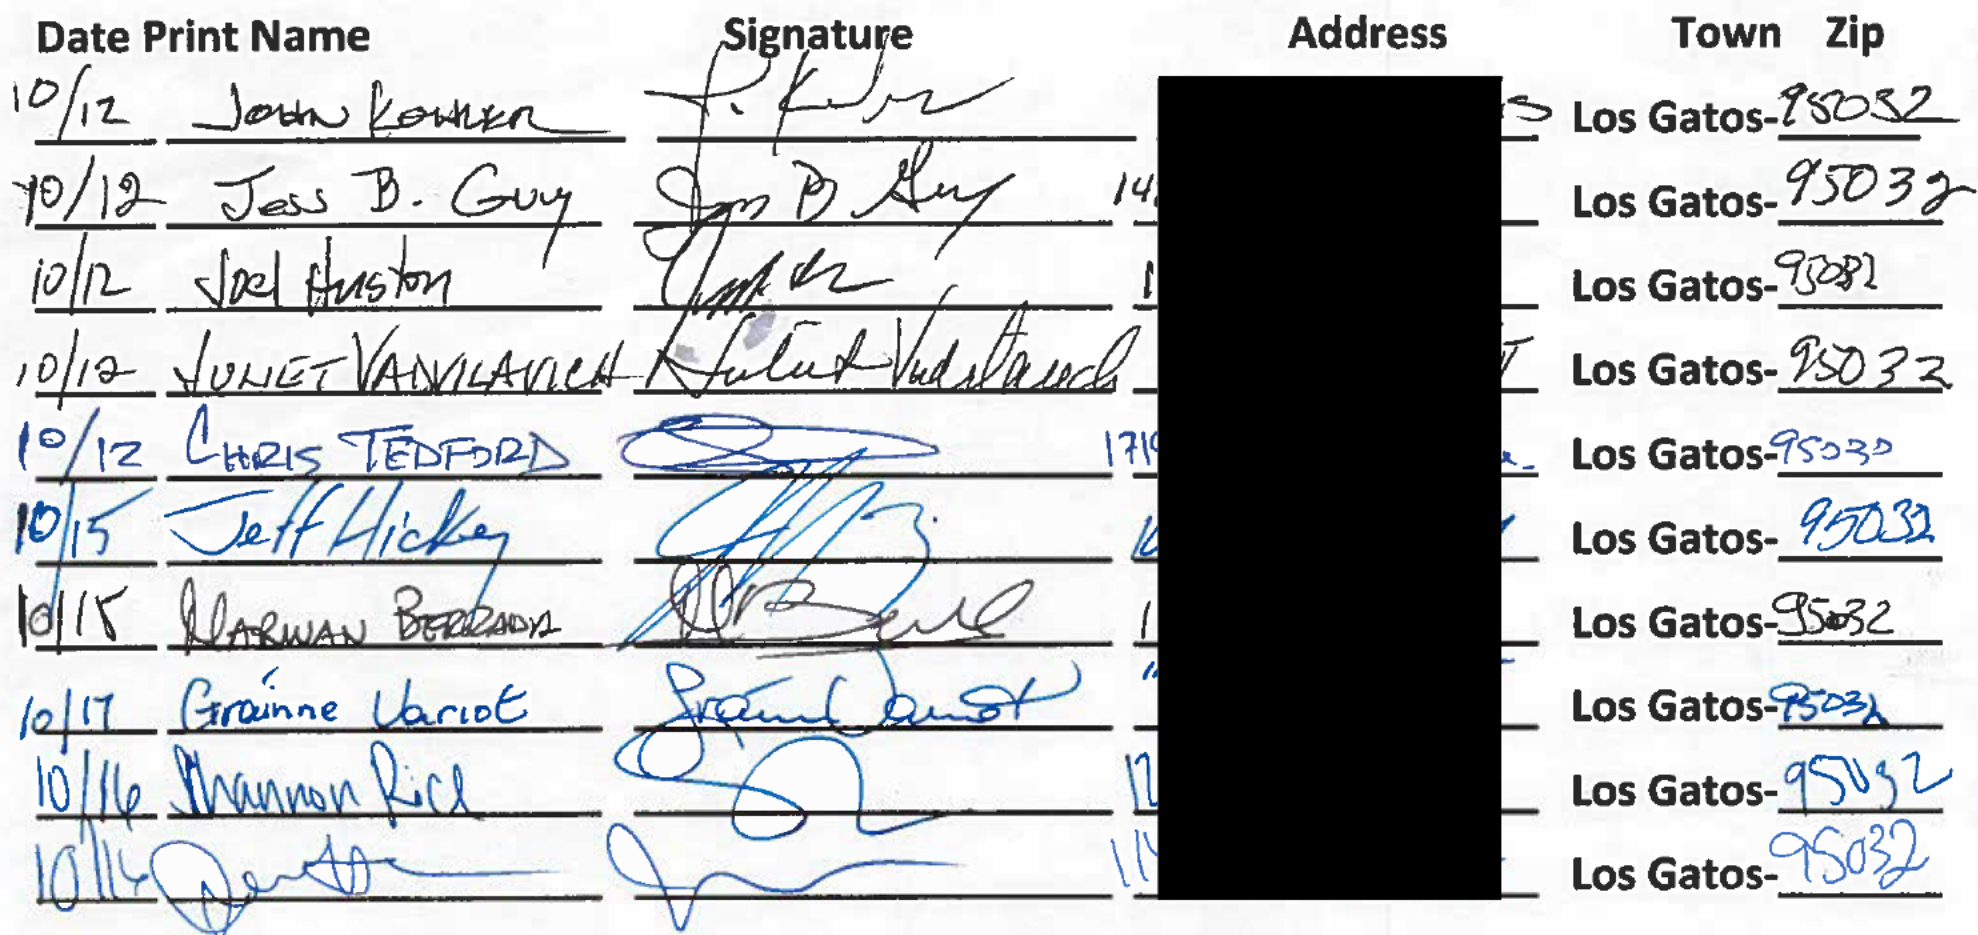 Date Print Name Signature Address Town Zip
10/12 John Kohler J. Kohler s Los Gatos-95032
10/12 Jess B. Guy Jess B Guy 14 Los Gatos-95032
10/12 Joel Huston 1 Los Gatos-95032
10/12 JUNET VADVILAVICH T Los Gatos-95032
10/12 CHRIS TEDFORD 1719 Los Gatos-95030
10/15 Jeff Hickey 10 Los Gatos-95032
10/15 MARWAN BERRADA 1 Los Gatos-95032
10/17 Gráinne Variot Gráinne Variot Los Gatos-95032
10/16 Shannon Rice 12 Los Gatos-95032
10/16 11 Los Gatos-95032